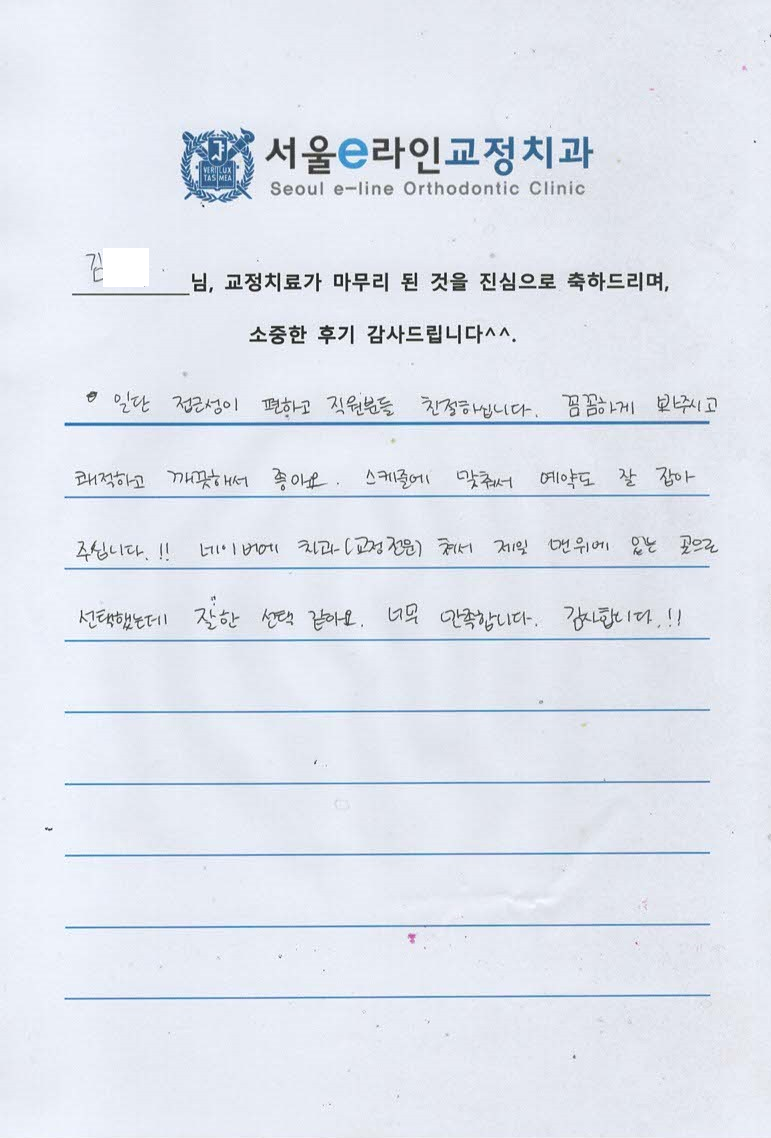 VERI LUX
TAS MEA
서울e라인교정치과
Seoul e-line Orthodontic Clinic
김 님, 교정치료가 마무리 된 것을 진심으로 축하드리며,
소중한 후기 감사드립니다^^.
일단 접근성이 편하고 직원분들 친절하십니다. 꼼꼼하게 봐주시고
쾌적하고 깨끗해서 좋아요. 스케줄에 맞춰서 예약도 잘 잡아
주십니다.!! 네이버에 치과(교정전문) 쳐서 제일 맨위에 있는 곳으로
선택했는데 잘한 선택 같아요. 너무 만족합니다. 감사합니다.!!